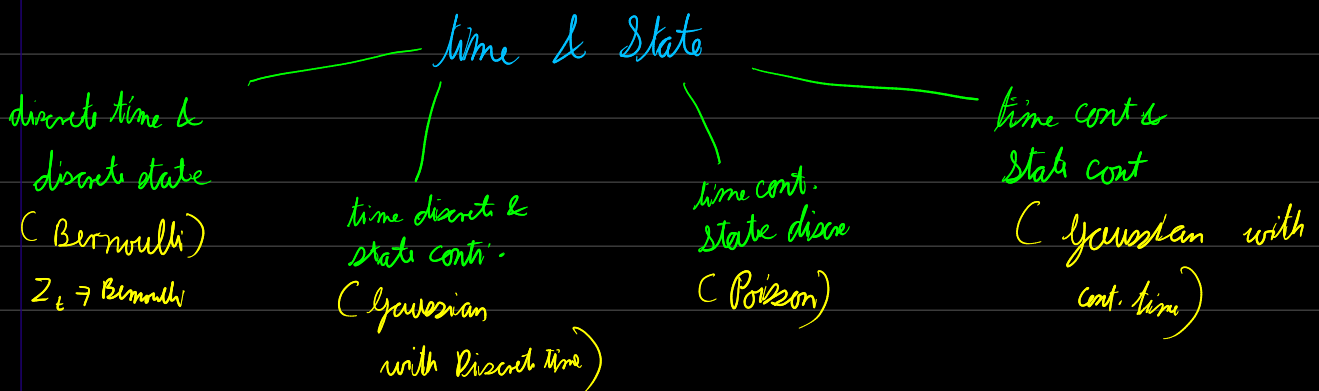 time & State
discrete time &
discrete state
(Bernoulli)
Z_t → Bernoulli
time discrete &
state conti.
(Gaussian
with Discrete time)
time cont.
state discre
(Poisson)
time cont &
State cont
(Gaussian with
cont. time)